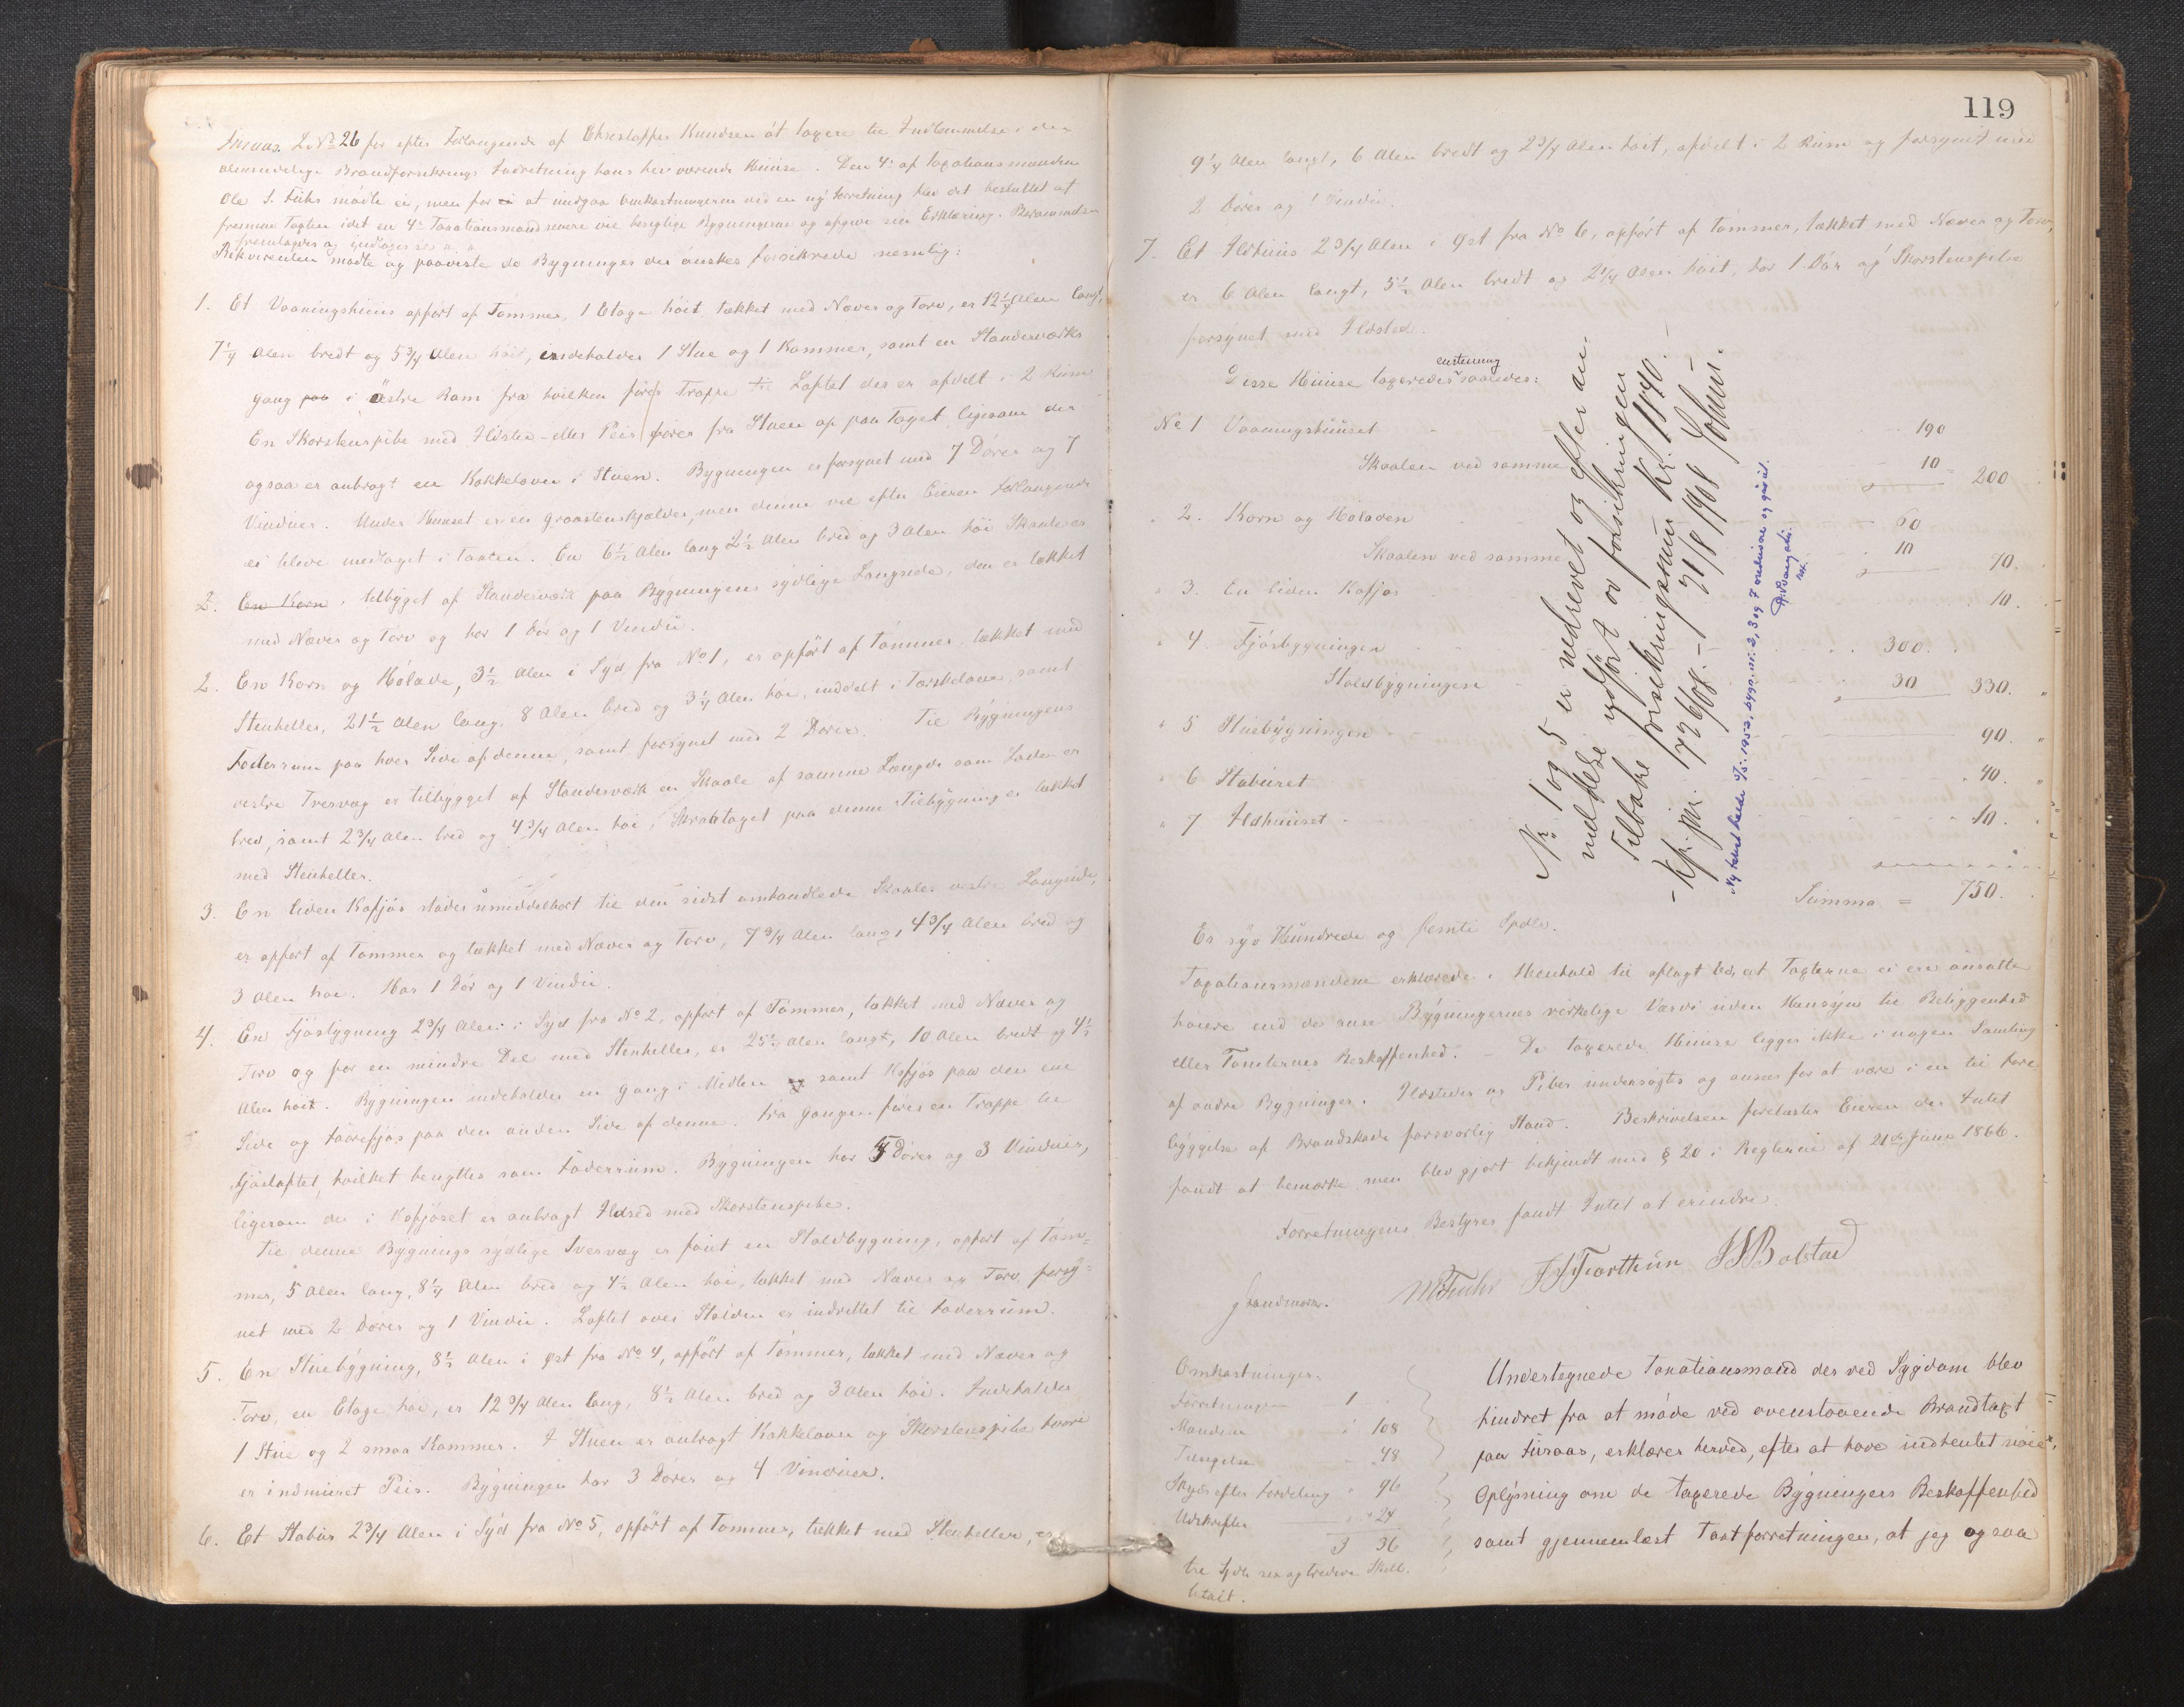 L. No 26 for efter Forlangende af Christoffer Knudsen at taxere til Indlemmelse i den
almindelige Brandforsikrings Indretning hans herværende Huuse. Den 4de af Taxationsmændene
Ole S. Fuhr mødte ei, men for at undgaa Omkostningerne ved en ny Forretning blev det besluttet at
fremme Taxten idet en 4de Taxationsmand senere vil besigtige Bygningerne og afgive sin Erklæring. Berammelsen
fremlagdes og indtages
Rekvirenten mødte og paaviste de Bygninger der ønskes forsikrede nemlig:
1. Et Vaaningshuus opført af Tømmer, 1 Etage høit, tækket med Næver og Torv, er 12 1/4 Alen langt,
7 1/4 Alen bredt og 5 3/4 Alen høit, indeholder 1 Stue og 1 Kammer, samt en Standerværks
gang paa i østre Ram fra hvilken fører Trappe til Loftet der er afdelt i 2 Rum
En Skorstenspibe med Ildsted eller Peis fører fra Stuen op paa Taget, ligesom der
ogsaa er anbragt en Kakkelovn i Stuen. Bygningen er forsynet med 7 Dører og 7
Vinduer. Under Huuset er en Graastenskjælder, men denne vil efter Eieren Forlangende
ei blive medtaget i Taxten. En 6 1/2 Alen lang 2 1/2 Alen bred og 3 Alen høi Skaale er
2. En Korn tilbygget af Standerværk paa Bygningens sydlige Langside, den er tækket
med Næver og Torv og har 1 Dør og 1 Vindu.
2. En Korn og Hølade, 3 1/2 Alen i Syd fra No 1, er opført af Tømmer, tækket med
Stenheller, 21 1/2 Alen lang, 8 Alen bred og 3 1/4 Alen høi, inddelt i Tærskelaave, samt
Foderrum paa hver Side af denne, samt forsynet med 2 Dører. Til Bygningens
vestre Tversvæg er tilbygget af Standerværk en Skaale af samme Længde som Laden er
bred, samt 2 3/4 Alen bred og 4 3/4 Alen høi, Skraataget paa denne Tilbygning er tækket
med Stenheller.
3. En liden Kofjøs støder umiddelbart til den sidst omhandlede Skaales vestre Langside,
er opført af Tømmer og tækket med Næver og Torv, 7 3/4 Alen lang, 4 3/4 Alen bred og
3 Alen høi. Har 1 Dør og 1 Vindu.
4. En Fjøsbygning 2 3/4 Alen i Syd fra No 2, opført af Tømmer, tækket med Næver og
Torv og for en mindre Del med Stenheller, er 25 1/2 Alen langt, 10 Alen bredt og 4 1/2
Alen høit. Bygningen indeholder en Gang i Midten og samt Kofjøs paa den ene
Side og Faarefjøs paa den anden Side af denne. Fra Gangen fører en Trappe til
Fjøsloftet, hvilket benyttes som Foderrum. Bygningen har 5 Dører og 3 Vinduer,
ligesom der i Kofjøset er anbragt Ildsted med Skorstenspibe.
Til denne Bygnings sydlige Tversvæg er føiet en Staldbygning, opført af Tøm=
mer, 5 Alen lang, 8 1/4 Alen bred og 4 1/2 Alen høi, tækket med Næver og Torv, forsy=
net med 2 Dører og 1 Vindu. Loftet over Stalden er indrettet til Foderrum.
5. En Stuebygning, 8 1/2 Alen i Øst fra No 4, opført af Tømmer, tækket med Næver og
Torv, en Etage høi, er 12 3/4 Alen lang, 8 1/2 Alen bred og 3 Alen høi. Indeholder
1 Stue og 2 smaa Kammer. I Stuen er anbragt Kakkelovn og Skorstenspibe hvori
er indmuret Peis. Bygningen har 3 Dører og 4 Vinduer.
6. Et Stabur 2 3/4 Alen i Syd fra No 5, opført af Tømmer, tækket med Stenheller, er
119
9 1/4 Alen langt, 6 Alen bredt og 2 3/4 Alen høit, afdelt i 2 Rum og forsynet med
2 Dører og 1 Vindu.
7. Et Ildhuus 2 3/4 Alen i Øst fra No 6, opført af Tømmer, tækket med Næver og Torv,
er 6 Alen langt, 5 1/2 Alen bredt og 2 1/4 Alen høit, har 1 Dør og Skorstenspibe
forsynet med Ildsted.
enstemmig
Disse Huuse taxeredes saaledes:
No 1 Vaaningshuuset 190
Skaalen ved samme 10 = 200
" 2. Korn og Høladen 60
Skaalen ved samme 10 70.
" 3. En liden Kofjøs 10.
" 4. Fjøsbygningen 300.
Staldbygningen 30 330. "
" 5 Stuebygningen 90. "
" 6 Staburet 40. "
" 7 Ildhuuset 10. "
Summa = 750.
Er syv Hundrede og femti Spdlr.
Taxationsmændene erklærede i Henhold til aflagt Ed, at Taxterne ei ere ansatte
høiere end de anse Bygningernes virkelige Værdi uden Hensyn til Beliggenhed
eller Tomternes Beskaffenhed. – De taxerede Huuse ligger ikke i nogen Samling
af andre Bygninger. Ildsteder og Piber undersøgtes og ansees for at være i en til Fore
byggelse af Brandskade forsvarlig Stand. Beskrivelsen forelæstes Eieren der Intet
fandt at bemærke men blev gjort bekjendt med § 20 i Reglerne af 21de Juni 1866.
Forretningens Bestyrer fandt Intet at erindre.
MTFuhr JJForthun JJBolstad
Nr. 1 og 5 er nedrevet og efter an-
meldelse udført av forsikringen
Tilbake forsikringssum kr. 1840.–
– Kfr. jnr. 172 6/08. – 31/8 1908 Sohm.
Ny takst holdt 1952, bygn. nr. 2, 3 og 7 nedrevne og går ut.
Omkostninger.
Forretningen 1
Mændene " 108
Tingelse " 48
Skyds efter Fordeling " 96
Udskrifter " 24
3 36
tre Spdlr sex og tredive Skill.
betalt.
Undertegnede Taxationsmand der ved Sygdom blev
hindret fra at møde ved ovenstaaende Brandtaxt
paa Furaas, erklærer herved, efter at have indhentet nøie
Oplysning om de taxerede Bygningers Beskaffenhed
samt gjennemlæst Taxtforretningen, at jeg ogsaa